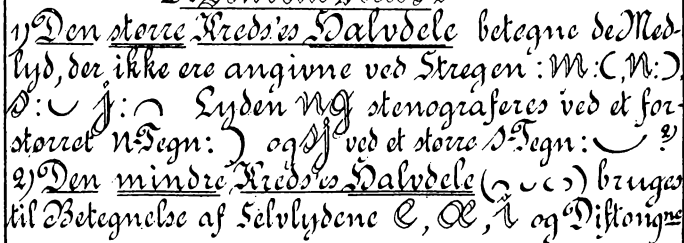 1) Den større Kreds'es Halvdele betegne de Med-
lyd, der ikke ere angivne ved Stregen: M: (, N: ),
S: ⌣ j: ⌢ Lyden Ng stenograferes ved et for-
størret N-Tegn: ) og Sj ved et større S-Tegn: ⌣ 2)
2) Den mindre Kreds'es Halvdele (⌢ ⌣ ( )) bruges
til Betegnelse af Selvlydene E, Æ, i og Diftongne